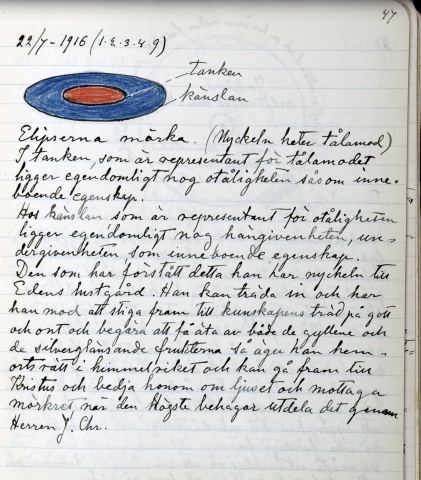 47
22/7-1916 (1.2.3.4.9)
tanken
känslan
Elipserna mörka. (Nyckeln heter tålamod)
I tanken, som är representant för tålamodet
ligger egendomligt nog otåligheten såsom inne-
boende egenskap.
Hos känslan som är representant för otåligheten
ligger egendomligt nog hängivenheten, un-
dergivenheten som inneboende egenskap.
Den som har förstått detta han har nyckeln till
Edens lustgård. Han kan träda in och har
han mod att stiga fram till kunskapens träd på gott
och ont och begära att få äta av både de gyllene och
de silverglänsande frukterna så äger han hem-
ortsrätt i himmelriket och kan gå fram till
Kristus och bedja honom om ljuset och mottaga
mörkret när den Högste behagar utdela det genom
Herren J. Chr.